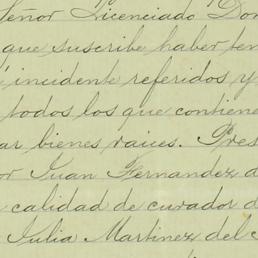 Señor Licenciado Don
que suscribe haber ten
incidente referidos y
todos los que contiene
ar bienes raices. Pres
or Juan Fernandez d
calidad de curador d
Julia Martinez del